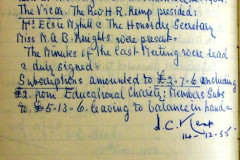 The Vica. The Rev H.R. Kemp presided;
Mrs Elsie Nyhill & The Honorary Secretary
Miss N.A.B. Knights were present.
The Minutes of the Last Meeting were read
& duly signed -
Subscriptions amounted to £2-7-6 including
£2. from Educational Charity: Members Subs
to £5-13-6. leaving to balance in hand -
Kemp
14-12-55.